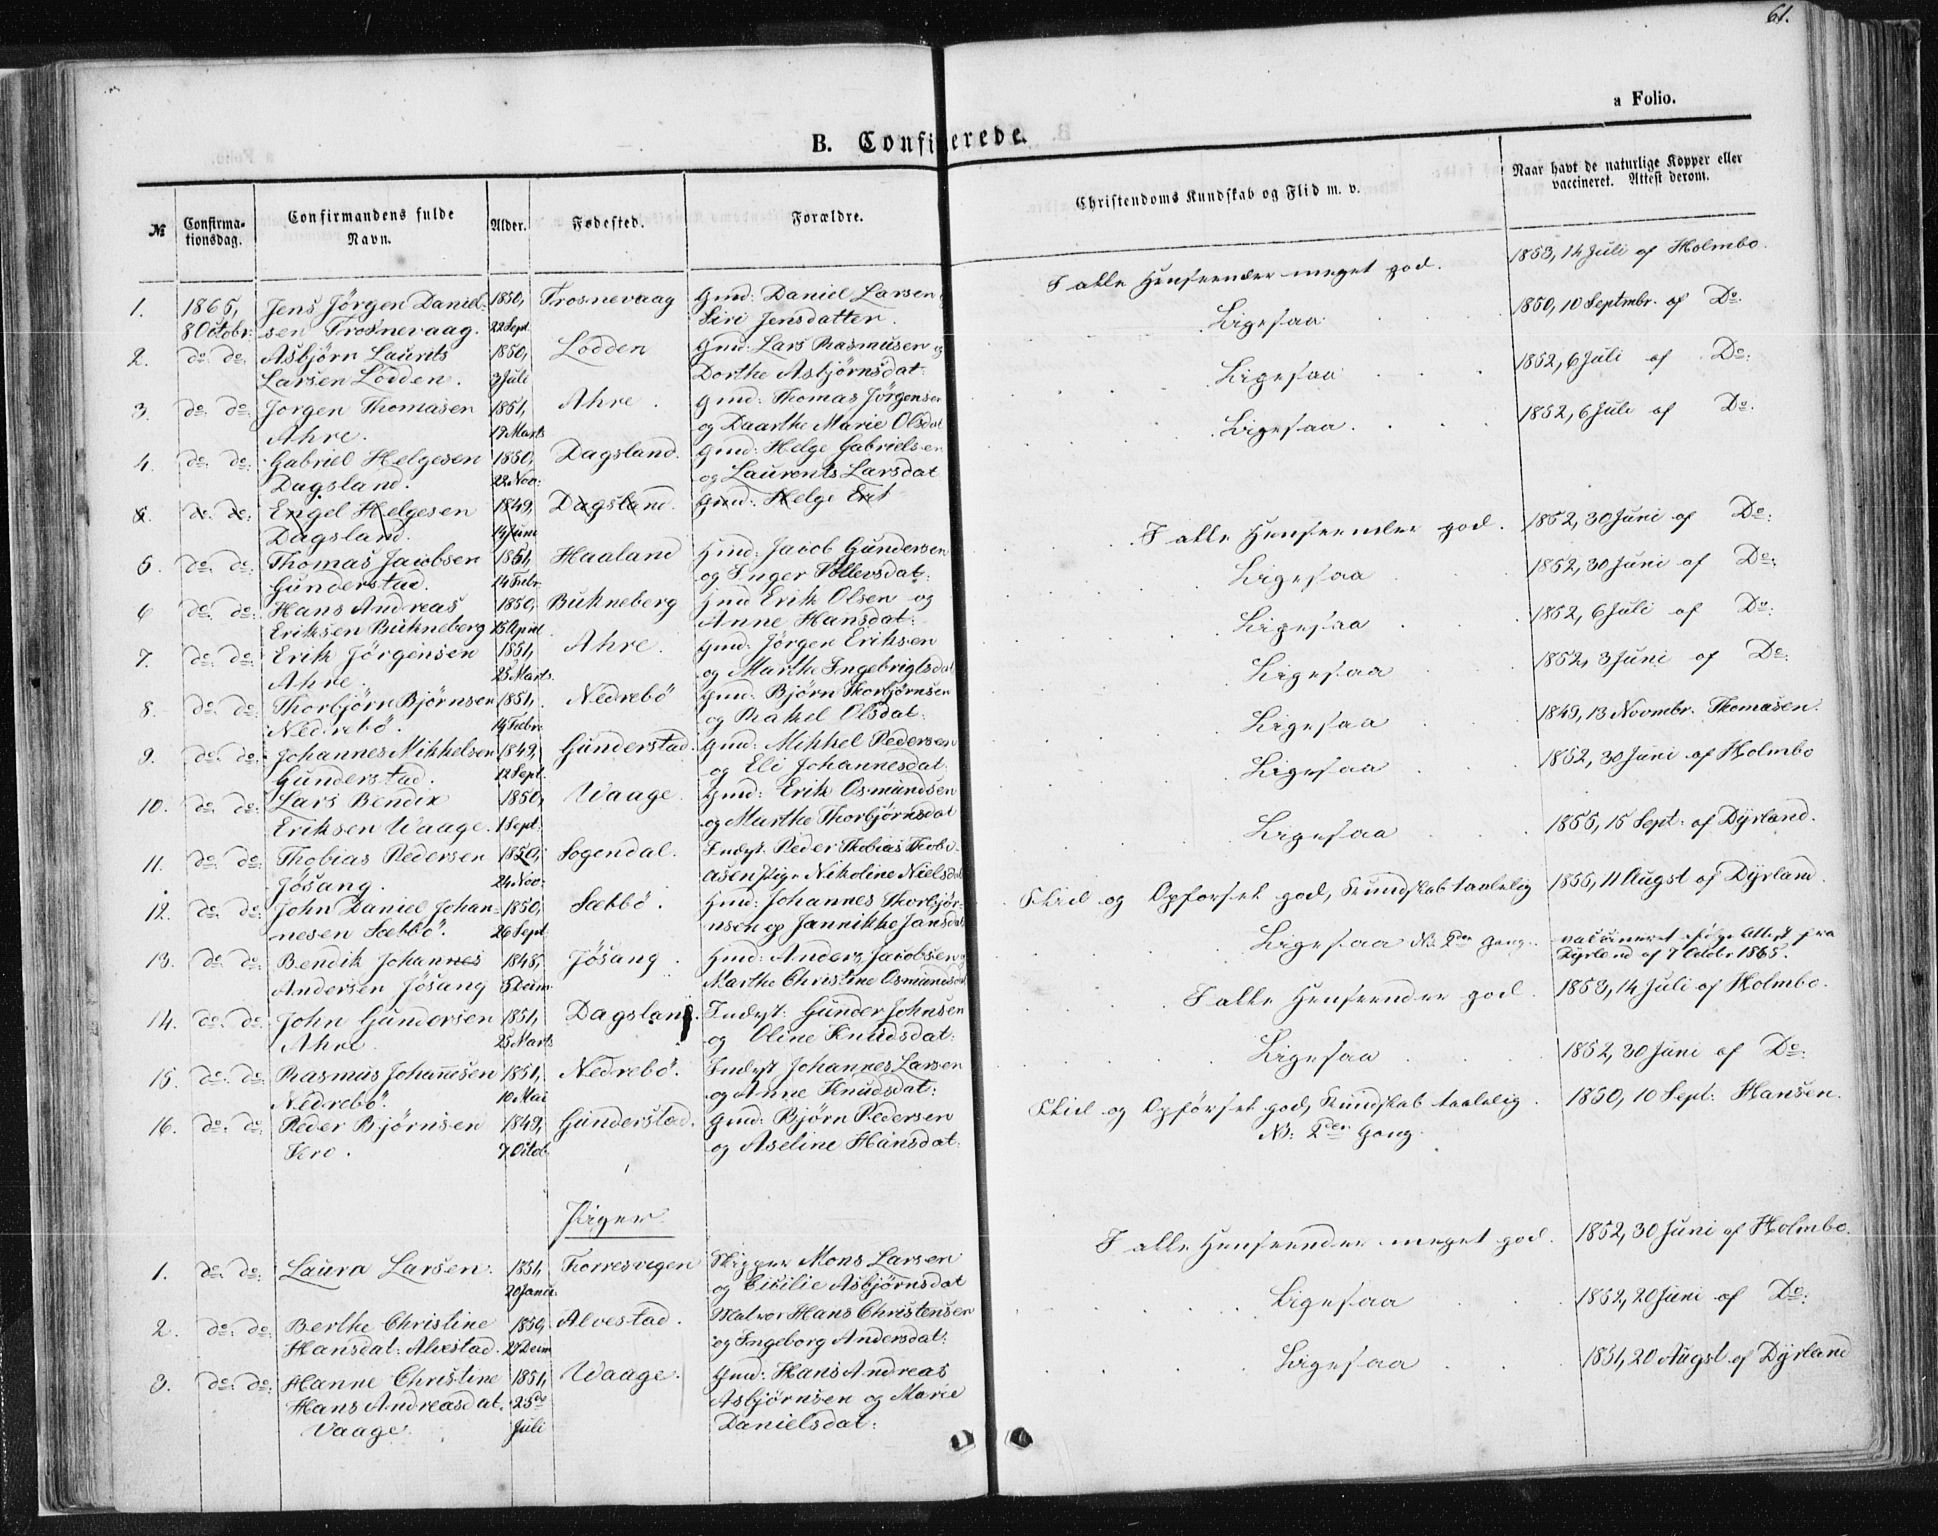 61.
a Folio.
B. Confirmerede.
№
Confirma-
tionsdag.
Confirmandens fulde
Navn.
Alder.
Fødested.
Forældre.
Christendoms Kundskab og Flid m. v.
Naar havt de naturlige Kopper eller
vaccineret. Attest derom.
1. 1865, Jens Jörgen Daniel- 1850, Frosnevaag Gmd: Daniel Larsen I alle Henseender meget god. 1853, 14 Juli af Holmbo.
8 Octobr. sen Frosnevaag. 22 Sept. Siri Jensdatter.
2. do. do. Asbjörn Laurits 1850, Lodden Gmd: Lars Rasmusen og Ligesaa 1850, 10 Septmbr. af Do.
Larsen Lodden. 3 Juli Dorthe Asbjørnsdat
3. do. do. Jorgen Thomasen 1851, Ahre. Gmd: Thomas Jørgensen Ligesaa 1852, 6 Juli af Do:
Ahre. 19 Marts og Daarthe Marie Olsdat
4. do. do. Gabriel Helgesen 1850, Dagsland. Gmd: Helge Gabrielsen Ligesaa. 1852, 6 Juli af Do.
Dagsland. 22 Nov: og Laurents Larsdat
5. do. do. Engel Helgesen 1849, Dagsland. Gmd: Helge Erit
Dagsland. 14 Juni
5. do. do. Thomas Jacobsen 1851, Haaland Gmd: Jacob Gundersen I alle Henseender god. 1852, 30 Juni af Do:
Gunderstad. 14 Febr. og Inger Tollevsdat:
6 do. do. Hans Andreas 1850, Bukneberg Gmd Erik Olsen og Ligesaa 1852, 30 Juni af Do:
Eriksen Bukneberg 15 April Anne Hansdat:
7. do. do. Erik Jörgensen 1851, Ahre. Gmd: Jörgen Eriksen Ligesaa 1852, 6 Juli af Do:
Ahre. 25 Marts. og Marthe Ingebrigtsdat
8. do. do. Thorbjörn Bjørnsen 1851, Nedrebö Gmd: Bjørn Thorbjørnsen Ligesaa 1852, 3 Juni af Do:
Nedrebö. 14 Febr. og Rakel Olsdat:
9. do. do. Johannes Mikkelsen 1849, Gunderstad. Gmd: Mikkel Pedersen Ligesaa 1849, 13 Novmbr. Thomasen.
Gunderstad. 12 Sept. og Eli Johannesdat:
10. do. do. Lars Bendix 1850, Waage. Gmd: Erik Osmundsen Ligesaa 1852, 30 Juni af Holmbo
Eriksen Waage. 1 Sept: og Marthe Thorbjørnsdat
11. do. do. Thobias Pedersen 1850, Sogendal. Indst. Peder Thobias Thobi- Ligesaa 1855, 15 Sept: af Dÿrland.
Jösang. 24 Nov: asen Pige Nikoline Nielsdat
12. do. do. John Daniel Johan- 1850, Sæbbö. Gmd: Johannes Thorbjör- Flid og Opförsel god, Kundskab taalelig 1855, 11 Augst af Dÿrland.
nesen Sæbbö. 26 Sept. nsen og Jannikke Jansdat
13. do. do. Bendik Johannes 1848, Jösang. Gmd: Anders Jacobsen og Ligesaa NB. 2den Gang. vaccineret ifölge Attest fra
Andersen Jösang 5 Decm. Marthe Christine Osmundsdat Dÿrland af 7 Octobr 1865.
14. do. do. John Gundersen 1851, Dagsland. Indst: Gunder Johnsen I alle Henseender god. 1853, 14 Juli af Holmbo.
Ahre. 25 Marts og Oline Knudsdat:
15. do. do. Rasmus Johannsen 1851, Nedrebö. Indst Johannes Larsen Ligesaa 1852, 30 Juni af Do:
Nedrebö. 10 Mai og Anne Knudsdat:
16. do. do. Peder Bjørnsen 1849, Gunderstad. Gmd: Bjørn Pedersen Flid og Opförsel god, Kundskab taalelig. 1850, 10 Sept: Hansen.
7 Octob. og Aseline Hansdat: NB: 2den Gang.
Piger
1. do. do. Laura Larsen. 1851, Torresvigen Skipper Mons Larsen I alle Henseender meget god. 1852, 30 Juni af Holmbo.
20 Janr. og Cicilie Asbjørnsdat
2. do. do. Berthe Christine 1850, Alvestad. Matros Hans Christensen Ligesaa 1852, 20 Juni af Do:
Hansdat: Alvestad. 27 Decm og Ingeborg Andersdat:
3. do. do. Hanne Christine 1851, Waage. Gmd: Hans Andreas Ligesaa 1851, 20 Augst af Dÿrland
Hans Andreasdat. 25de Asbjørnsen og Marie
Vaage. Juli Danielsdat: